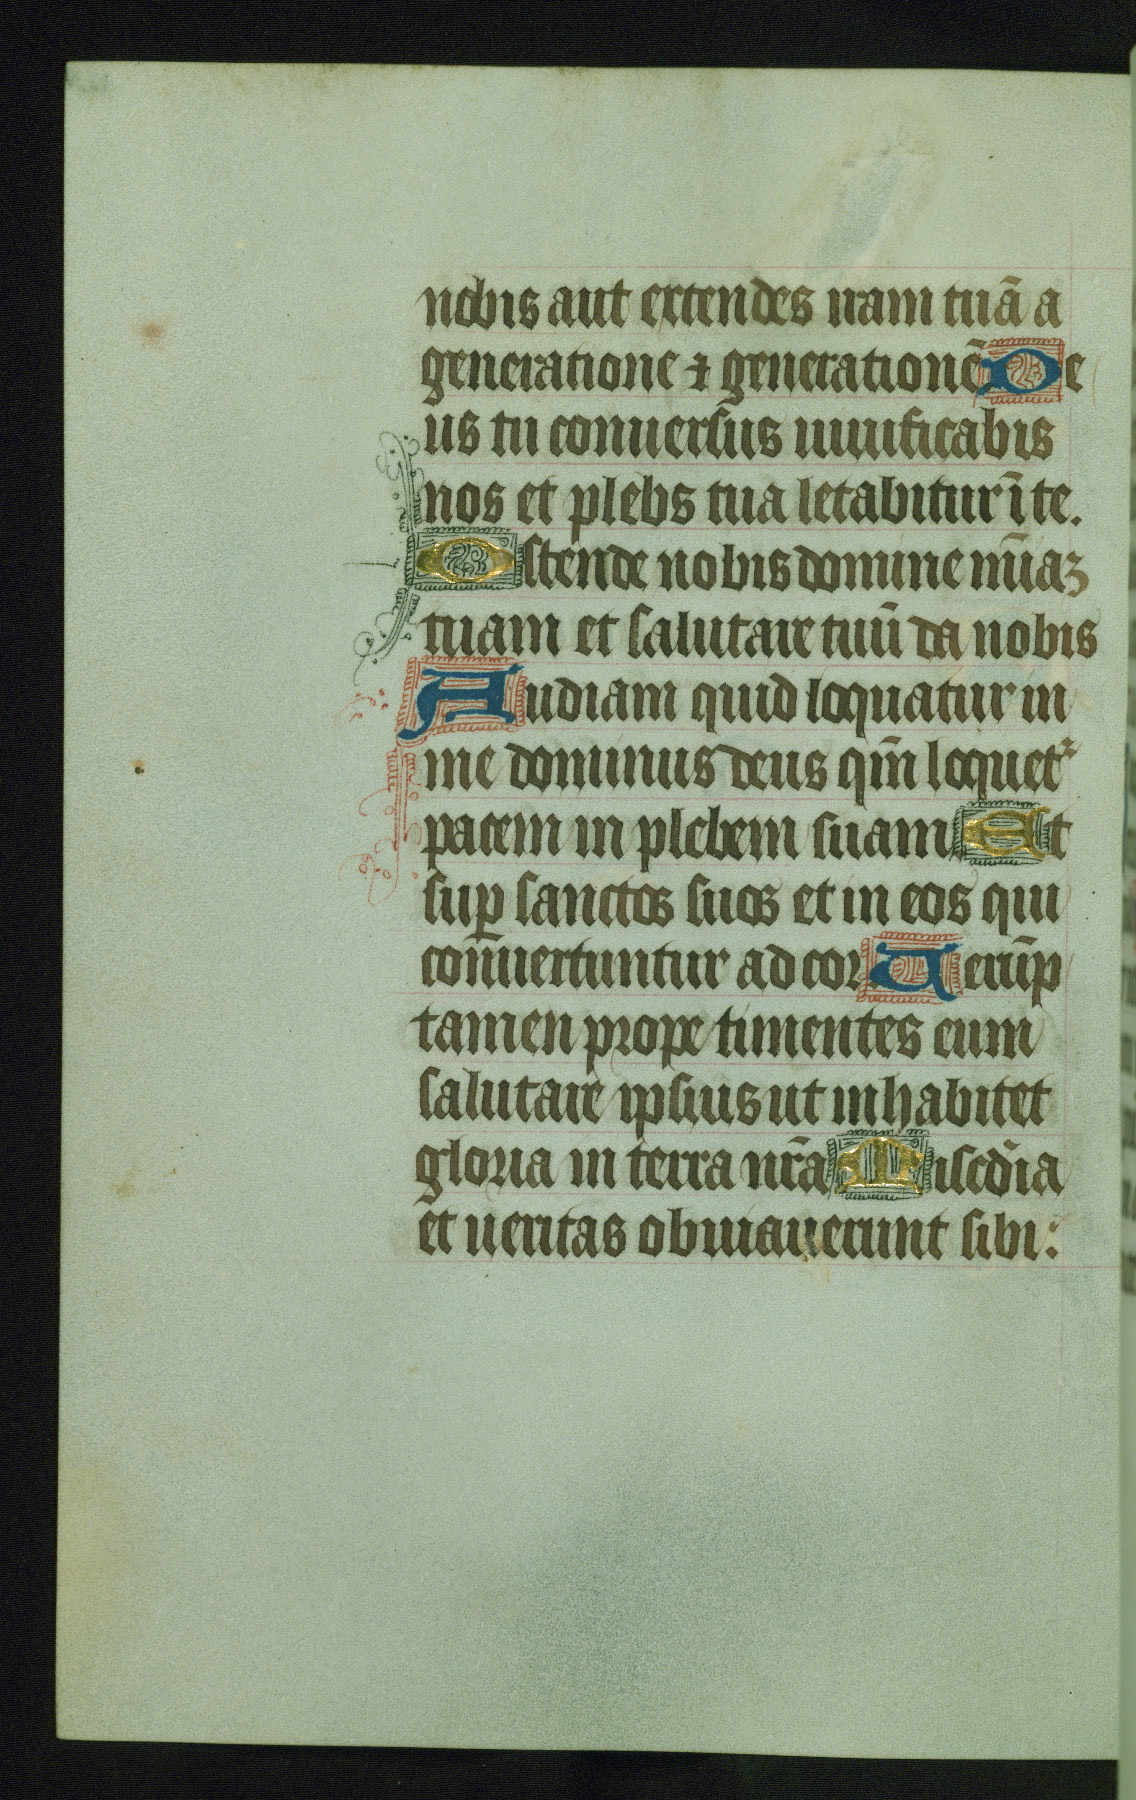 nobis aut extendes iram tuā a
generatione ⁊ generationē De
us tu conuersus uiuificabis
nos et plebs tua letabitur ī te.
Ostende nobis domine mīaꝫ
tuam et salutare tuū da nobis
Audiam quid loquatur in
me dominus deus qm̄ loquetᷣ
pacem in plebem suam Et
suꝑ sanctos suos et in eos qui
conuertuntur ad cor Ueruꝑ̄
tamen prope timentes eum
salutare ipsius ut inhabitet
gloria in terra nr̄a Misc̄dia
et ueritas obuiauerunt sibi: